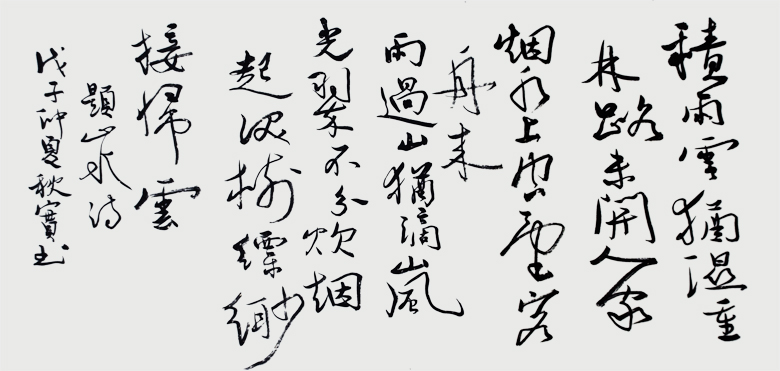 積雨雲猶濕重
林路未開人家
烟水上望客
舟来
雨過山猶滴嵐
光翠不分炊烟
起深樹縹緲
接帰雲
題山水诗
戊子仲夏秋實书